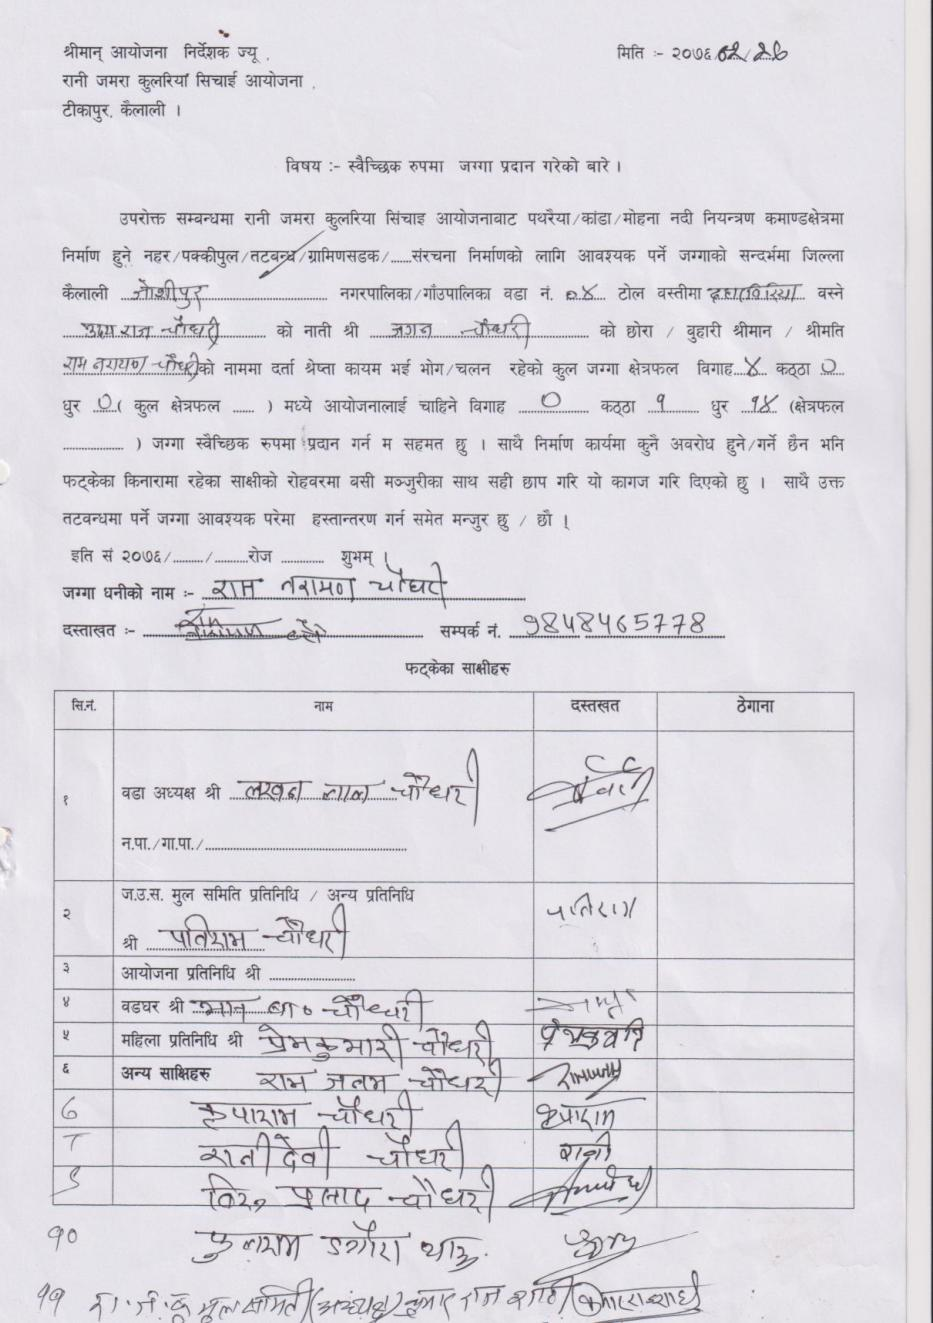 श्रीमान् आयोजना निर्देशक ज्यू ,
मिति :- २०७६/०२/२६
रानी जमरा कुलरियाँ सिचाई आयोजना ,
टीकापुर, कैलाली ।
विषय :- स्वैच्छिक रुपमा जग्गा प्रदान गरेको बारे ।
उपरोक्त सम्बन्धमा रानी जमरा कुलरिया सिंचाइ आयोजनावाट पथरैया/कांडा/मोहना नदी नियन्त्रण कमाण्डक्षेत्रमा
निर्माण हुने नहर/पक्कीपुल/तटबन्ध/ग्रामिणसडक/......संरचना निर्माणको लागि आवश्यक पर्ने जग्गाको सन्दर्भमा जिल्ला
कैलाली जोशीपुर नगरपालिका/गाँउपालिका वडा नं. ०४ टोल वस्तीमा वस्ने
चौधरी को नाती श्री जगन चौधरी को छोरा / वुहारी श्रीमान / श्रीमति
राम नरायण चौधरी को नाममा दर्ता श्रेष्ता कायम भई भोग/चलन रहेको कुल जग्गा क्षेत्रफल विगाह ४ कठ्ठा ०
धुर ० ( कुल क्षेत्रफल ...... ) मध्ये आयोजनालाई चाहिने विगाह ० कठ्ठा १ धुर १४ (क्षेत्रफल
................ ) जग्गा स्वैच्छिक रुपमा प्रदान गर्न म सहमत छु । साथै निर्माण कार्यमा कुनै अवरोध हुने/गर्ने छैन भनि
फट्केका किनारामा रहेका साक्षीको रोहवरमा वसी मञ्जुरीका साथ सही छाप गरि यो कागज गरि दिएको छु । साथै उक्त
तटवन्धमा पर्ने जग्गा आवश्यक परेमा हस्तान्तरण गर्न समेत मन्जुर छु / छौ ।
इति सं २०७६/........./.........रोज ............ शुभम् ।
जग्गा धनीको नाम :- राम नरायण चौधरी
दस्ताखत :- राम सम्पर्क नं. 9848465778
फट्केका साक्षीहरु
सि.नं. नाम दस्तखत ठेगाना
१ वडा अध्यक्ष श्री लखन लाल चौधरी
न.पा./गा.पा./..................................................
२ ज.उ.स. मुल समिति प्रतिनिधि / अन्य प्रतिनिधि
श्री पतिराम चौधरी पतिराम
३ आयोजना प्रतिनिधि श्री .....................
४ वडघर श्री मान ब० चौधरी
५ महिला प्रतिनिधि श्री प्रेमकुमारी चौधरी
६ अन्य साक्षिहरु राम जनम चौधरी
७ कृपाराम चौधरी कृपाराम
८ रानीदेवी चौधरी रानी
९ प्रसाद चौधरी
१० फुलराम डगौरा थारु
११ रा.ज.कु मुल समिति (अध्यक्ष)